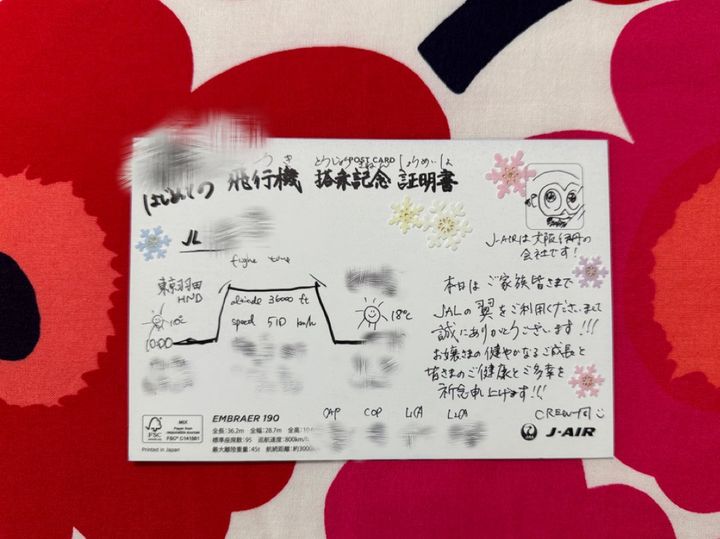 POST CARD
つき とうじょうきねん しょうめいしょ
はじめての 飛行機 搭乗記念 証明書
JL
flight time
東京羽田
HND
altitude 36000 ft
speed 510 km/h
18℃
J-AIRは大阪伊丹の
会社です!
本日は ご家族皆さまで
JALの翼をご利用くださいまして
誠にありがとうございます!!!
お嬢さまの健やかなるご成長と
皆さまのご健康とご多幸を
祈念申し上げます!!!
CREW一同
CAP COP L1CA L2CA
FSC
MIX
Paper from responsible sources
FSC® C141981
Printed in Japan
EMBRAER 190
全長:36.2m 全幅:28.7m 全高:10.
標準座席数:95 巡航速度:800km/h
最大離陸重量:45t 航続距離:約3000
JAL
J-AIR